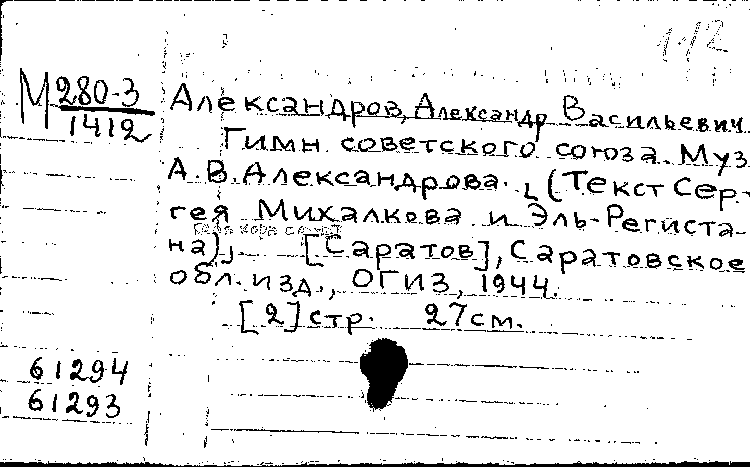 1-12
М 280-3
1412
Александров, Александр Васильевич.
Гимн советского союза. Муз
А. В. Александрова. (Текст Сер-
гея Михалкова и Эль-Региста-
на). [Саратов], Саратовское
обл. изд., ОГИЗ, 1944.
[2] стр. 27 см.
61294
61293